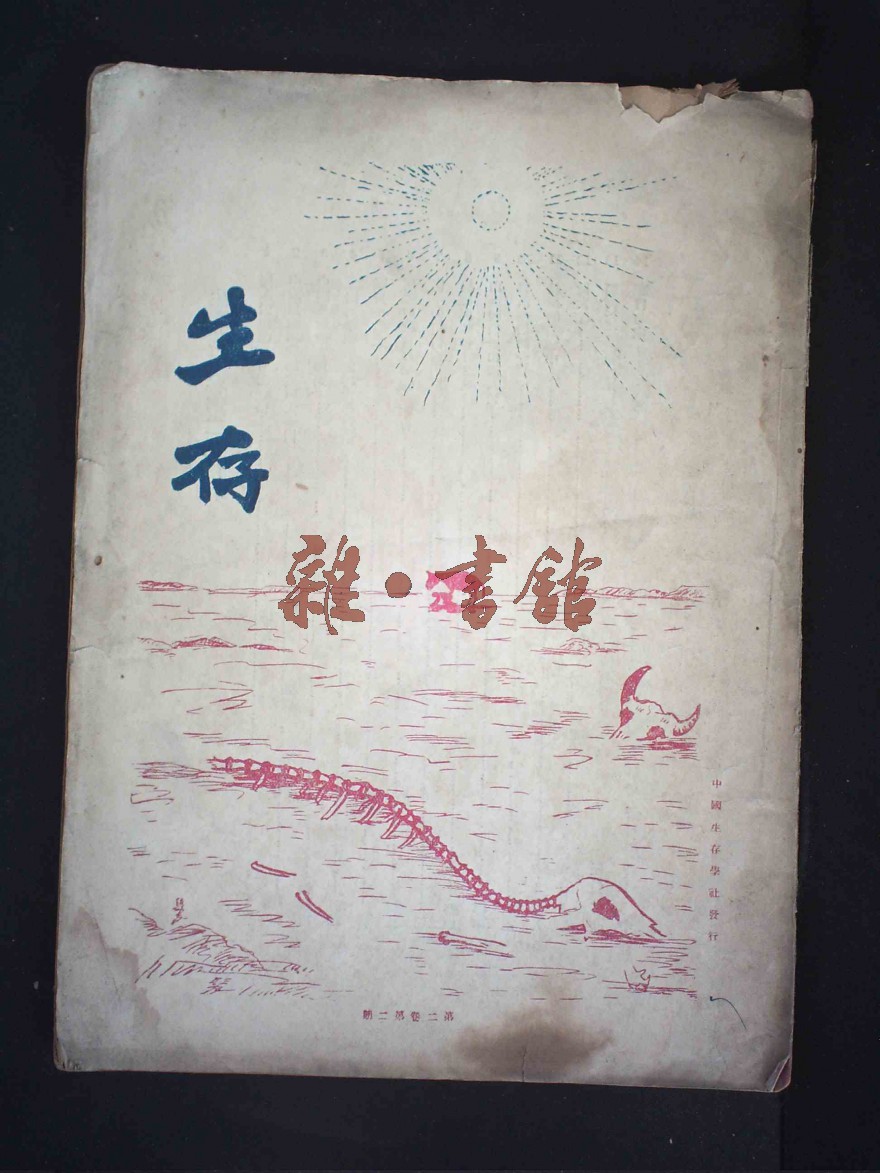 生存
雜·書館
中國生存學社發行
第二卷第二期